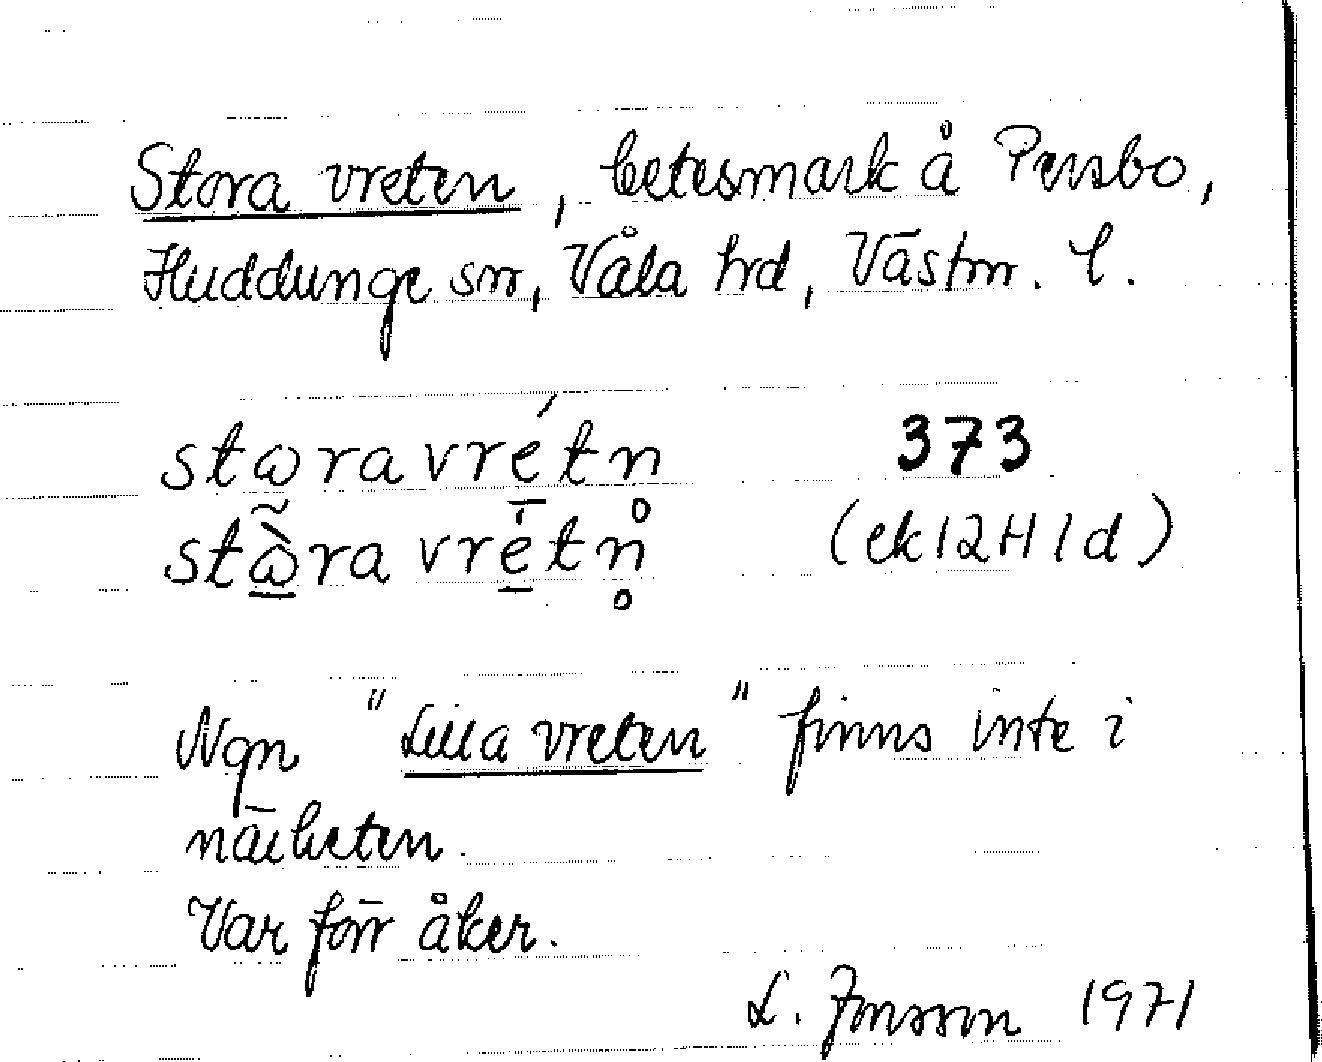 Stora vreten, betesmark å Persbo,
Huddunge sn, Våla hrd, Västm. l.
stωra vrétn 373
stω̃̀ra vrétn̥ (ek 12H 1d)
Ngn "Lilla vreten" finns inte i
närheten.
Var förr åker.
L. Jonsson 1971